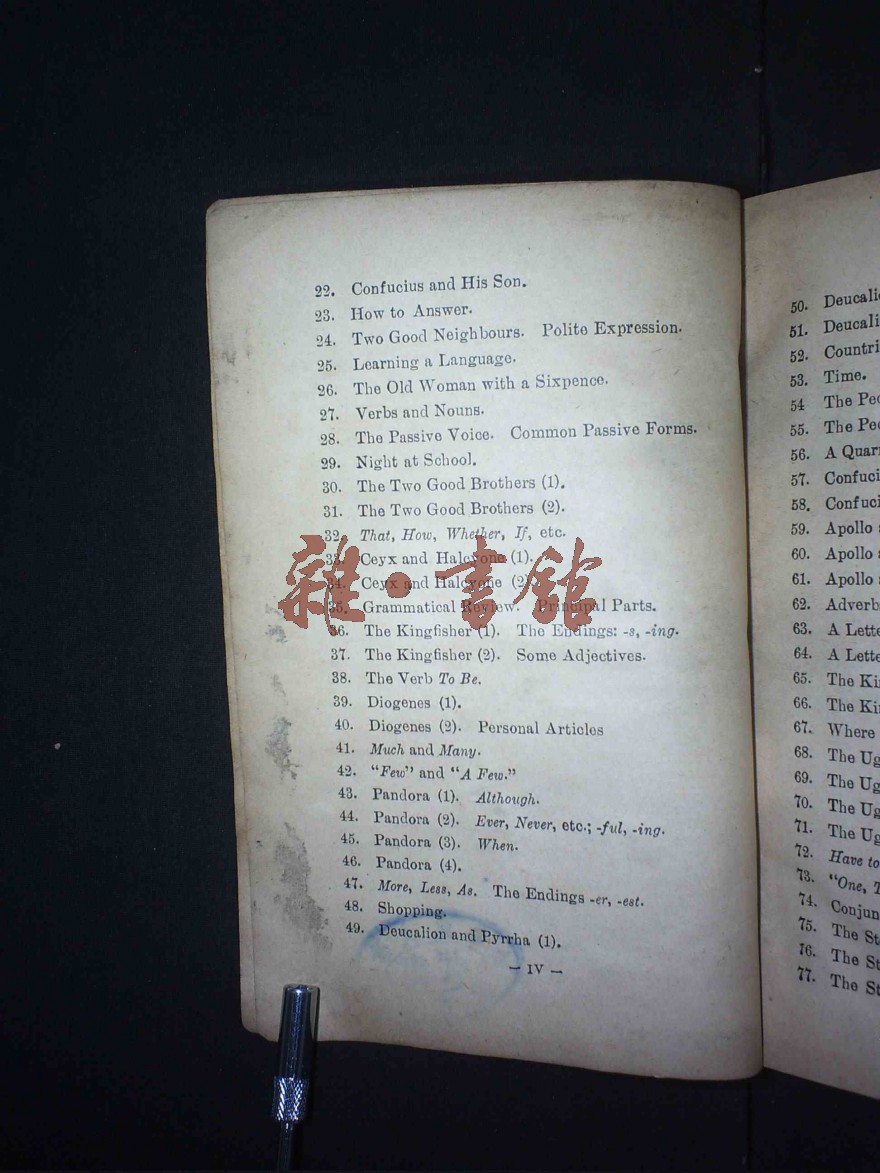 22. Confucius and His Son.
23. How to Answer.
24. Two Good Neighbours. Polite Expression.
25. Learning a Language.
26. The Old Woman with a Sixpence.
27. Verbs and Nouns.
28. The Passive Voice. Common Passive Forms.
29. Night at School.
30. The Two Good Brothers (1).
31. The Two Good Brothers (2).
32. That, How, Whether, If, etc.
33. Ceyx and Halcyone (1).
34. Ceyx and Halcyone (2).
35. Grammatical Review. Principal Parts.
36. The Kingfisher (1). The Endings: -s, -ing.
37. The Kingfisher (2). Some Adjectives.
38. The Verb To Be.
39. Diogenes (1).
40. Diogenes (2). Personal Articles
41. Much and Many.
42. “Few” and “A Few.”
43. Pandora (1). Although.
44. Pandora (2). Ever, Never, etc.; -ful, -ing.
45. Pandora (3). When.
46. Pandora (4).
47. More, Less, As. The Endings -er, -est.
48. Shopping.
49. Deucalion and Pyrrha (1).
— IV —
雜·書館
50. Deucali
51. Deucali
52. Countri
53. Time.
54 The Pe
55. The Pe
56. A Quar
57. Confuci
58. Confuci
59. Apollo
60. Apollo
61. Apollo
62. Adverb
63. A Lette
64. A Lette
65. The Ki
66. The Ki
67. Where
68. The Ug
69. The Ug
70. The Ug
71. The Ug
72. Have to
73. “One, T
74. Conjun
75. The St
76. The St
77. The St